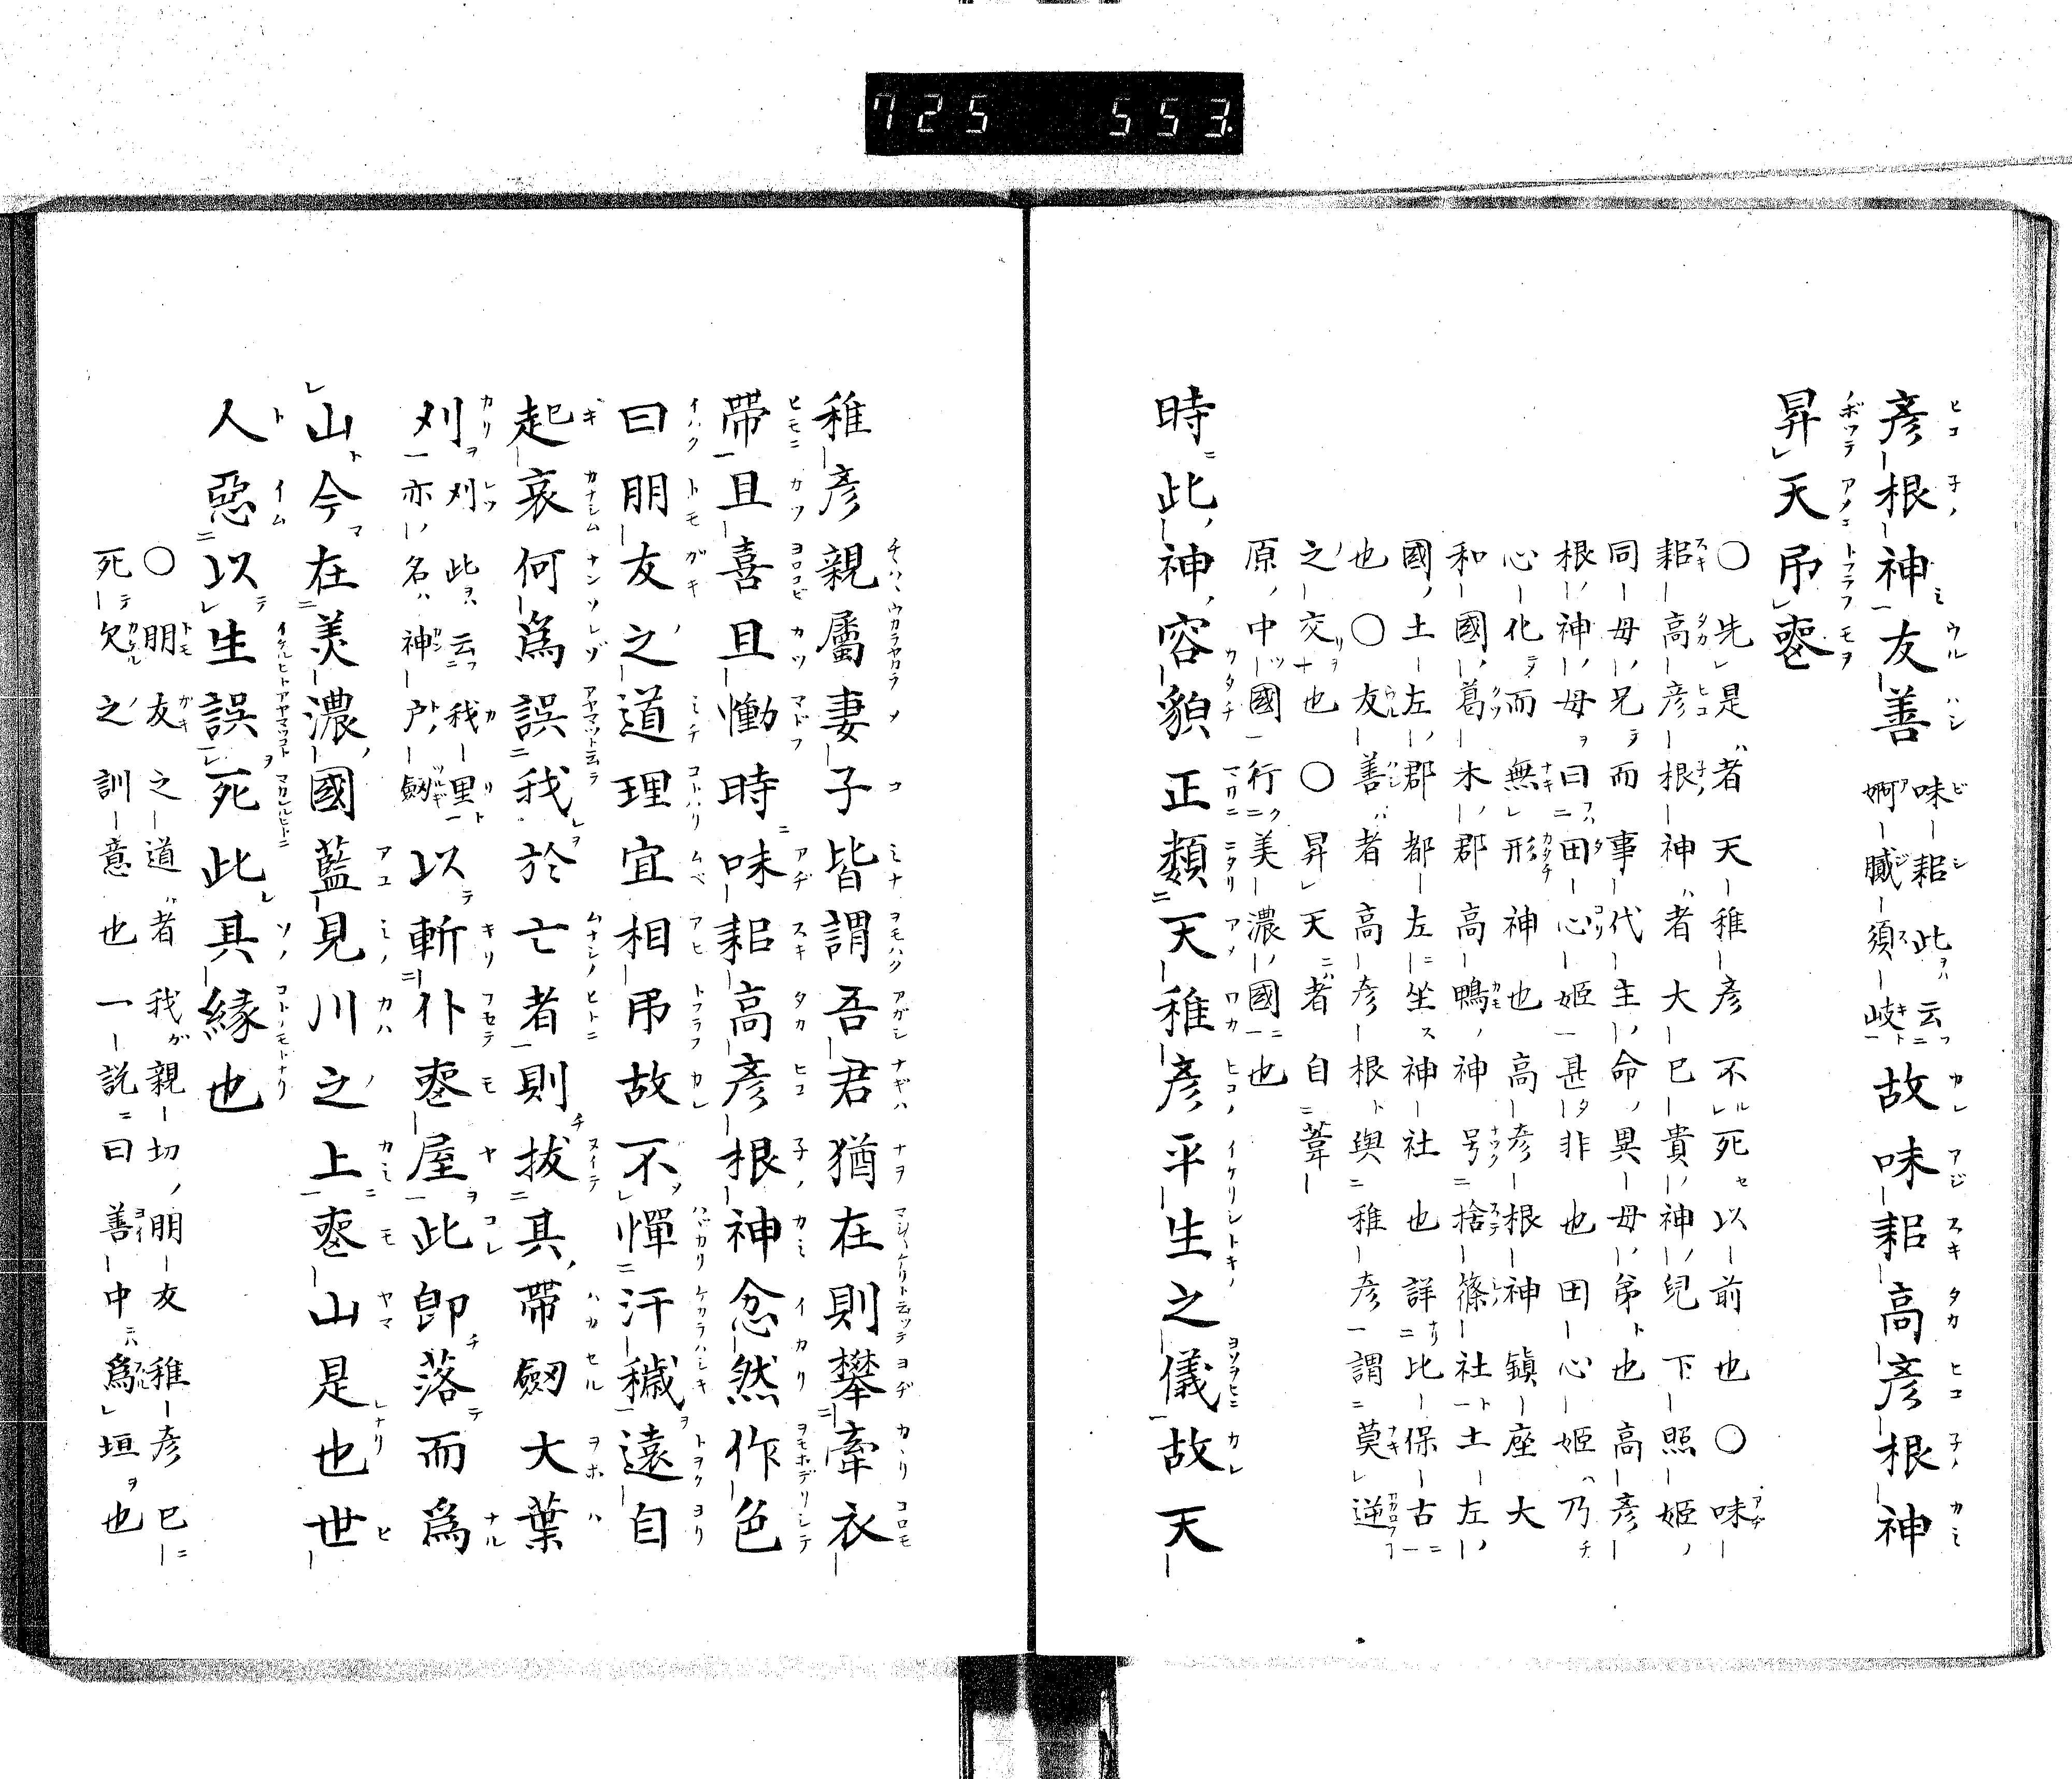 725 553.
彦根神友善味耜此云婀膩須岐故味耜高彦根神
昇天弔䘮
〇先是者天稚彦不死以前也〇味
耜高彦根神者大巳貴神兒下照姫
同母兄而事代主命異母弟也高彦
根神母曰田心姫甚非也田心姫乃
心化而無形神也高彦根神鎮座大
和國葛木郡高鴨神号捨篠社土左
國土左郡都左坐神社也詳比保古
也〇友善者高彦根與稚彦謂莫逆
之交也〇昇天者自葦
原中國行美濃國也
時此神容貌正類天稚彦平生之儀故天
稚彦親屬妻子皆謂吾君猶在則攀牽衣
帶且喜且慟時味耜高彦根神忿然作色
曰朋友之道理宜相弔故不憚汗穢遠自
起哀何爲誤我於亡者則拔其帶劒大葉
刈刈此云我里亦名神戸劒以斬仆䘮屋此卽落而爲
山今在美濃國藍見川之上䘮山是也世
人惡以生誤死此具縁也
〇朋友之道者我親切朋友稚彦巳
死欠之訓意也一説曰善中爲垣也